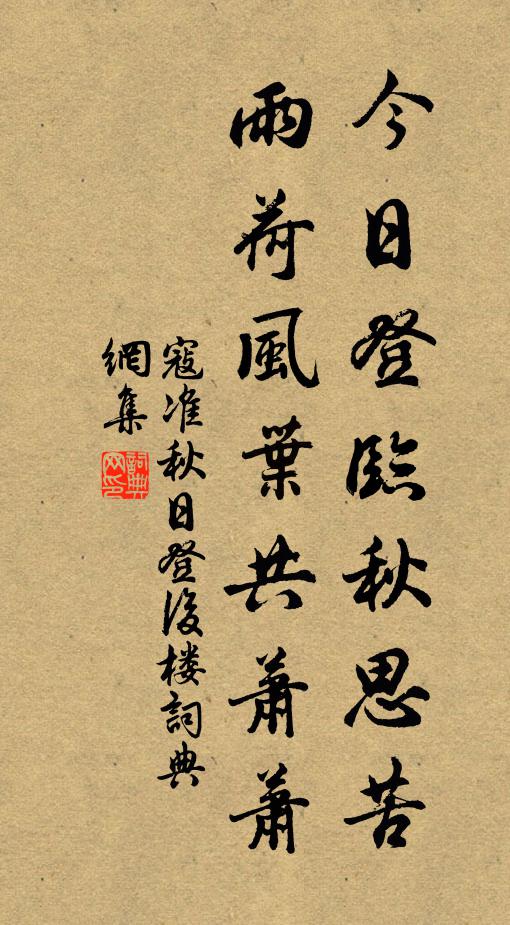 今日登臨秋思苦
雨荷風葉共蕭蕭
寇准秋日登後楼詞典
網集
詞典
网印